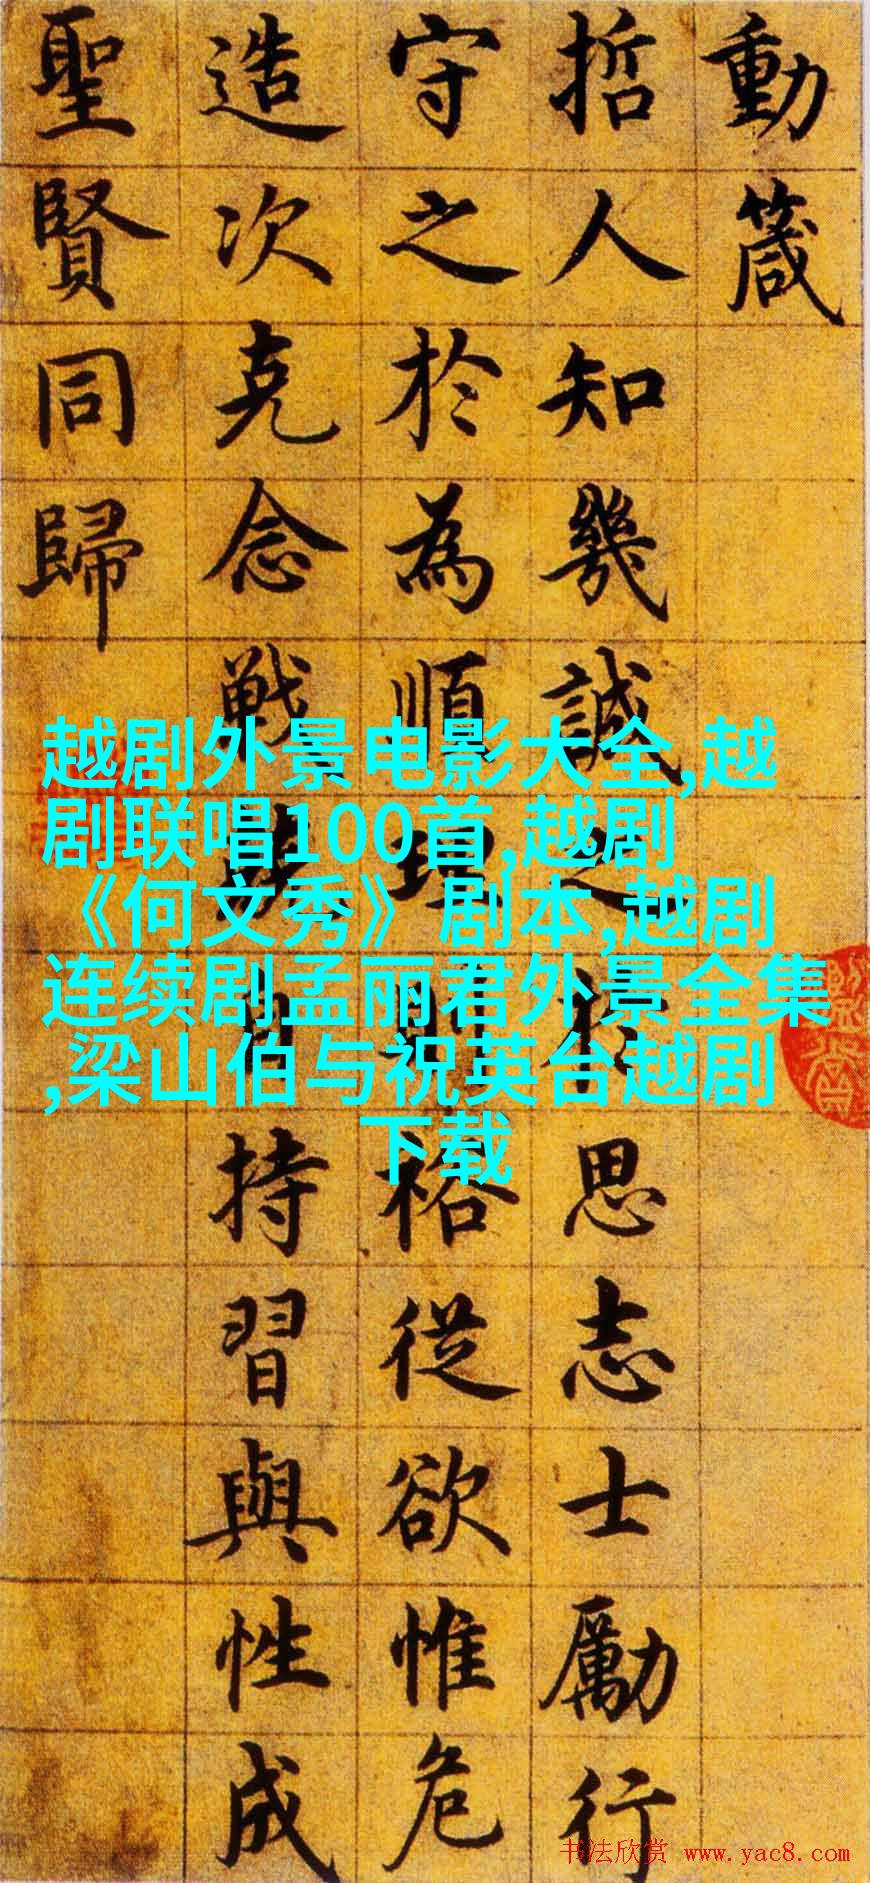 動箴
哲人知幾誠之於思志士勵行
守之於為順理則裕從欲惟危
造次克念戰兢自持習與性成
聖賢同歸
越剧外景电影大全,越
剧联唱100首,越剧
《何文秀》剧本,越剧
连续剧孟丽君外景全集
,梁山伯与祝英台越剧
下载
书法欣赏 www.yac8.com